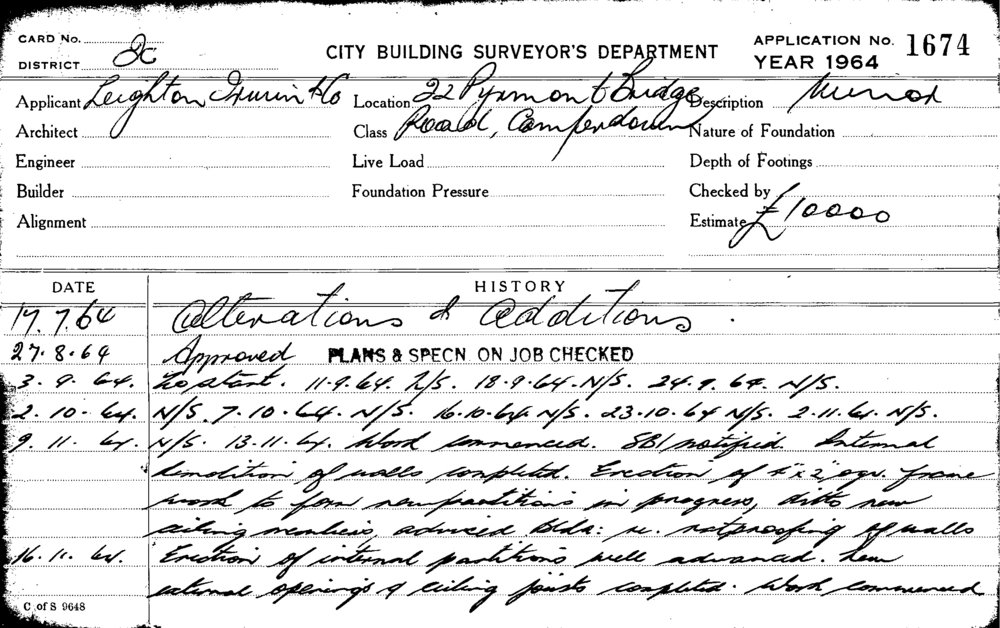 CARD No.
DISTRICT 2C
CITY BUILDING SURVEYOR'S DEPARTMENT
APPLICATION No. 1674
YEAR 1964
Applicant Leighton Irwin & Co Location 22 Pyrmont Bridge Description Minor
Architect Class Road, Camperdown Nature of Foundation
Engineer Live Load Depth of Footings
Builder Foundation Pressure Checked by
Alignment Estimate £10000
DATE HISTORY
17.7.64 Alterations & Additions.
27.8.64 Approved PLANS & SPECN ON JOB CHECKED
3.9.64. To start. 11.9.64. N/S. 18.9.64. N/S. 24.9.64. N/S.
2.10.64. N/S. 7.10.64. N/S. 16.10.64 N/S. 23.10.64 N/S. 2.11.64. N/S.
9.11.64. N/S. 13.11.64. Work commenced. SBI notified. Internal
demolition of walls completed. Erection of 4" x 2" frame
work to form new partitions in progress, ditto new
ceiling members, advised Bldr: re. ratproofing of walls
16.11.64. Erection of internal partitions well advanced. New
external openings & ceiling joists completed. Work commenced
C of S 9648